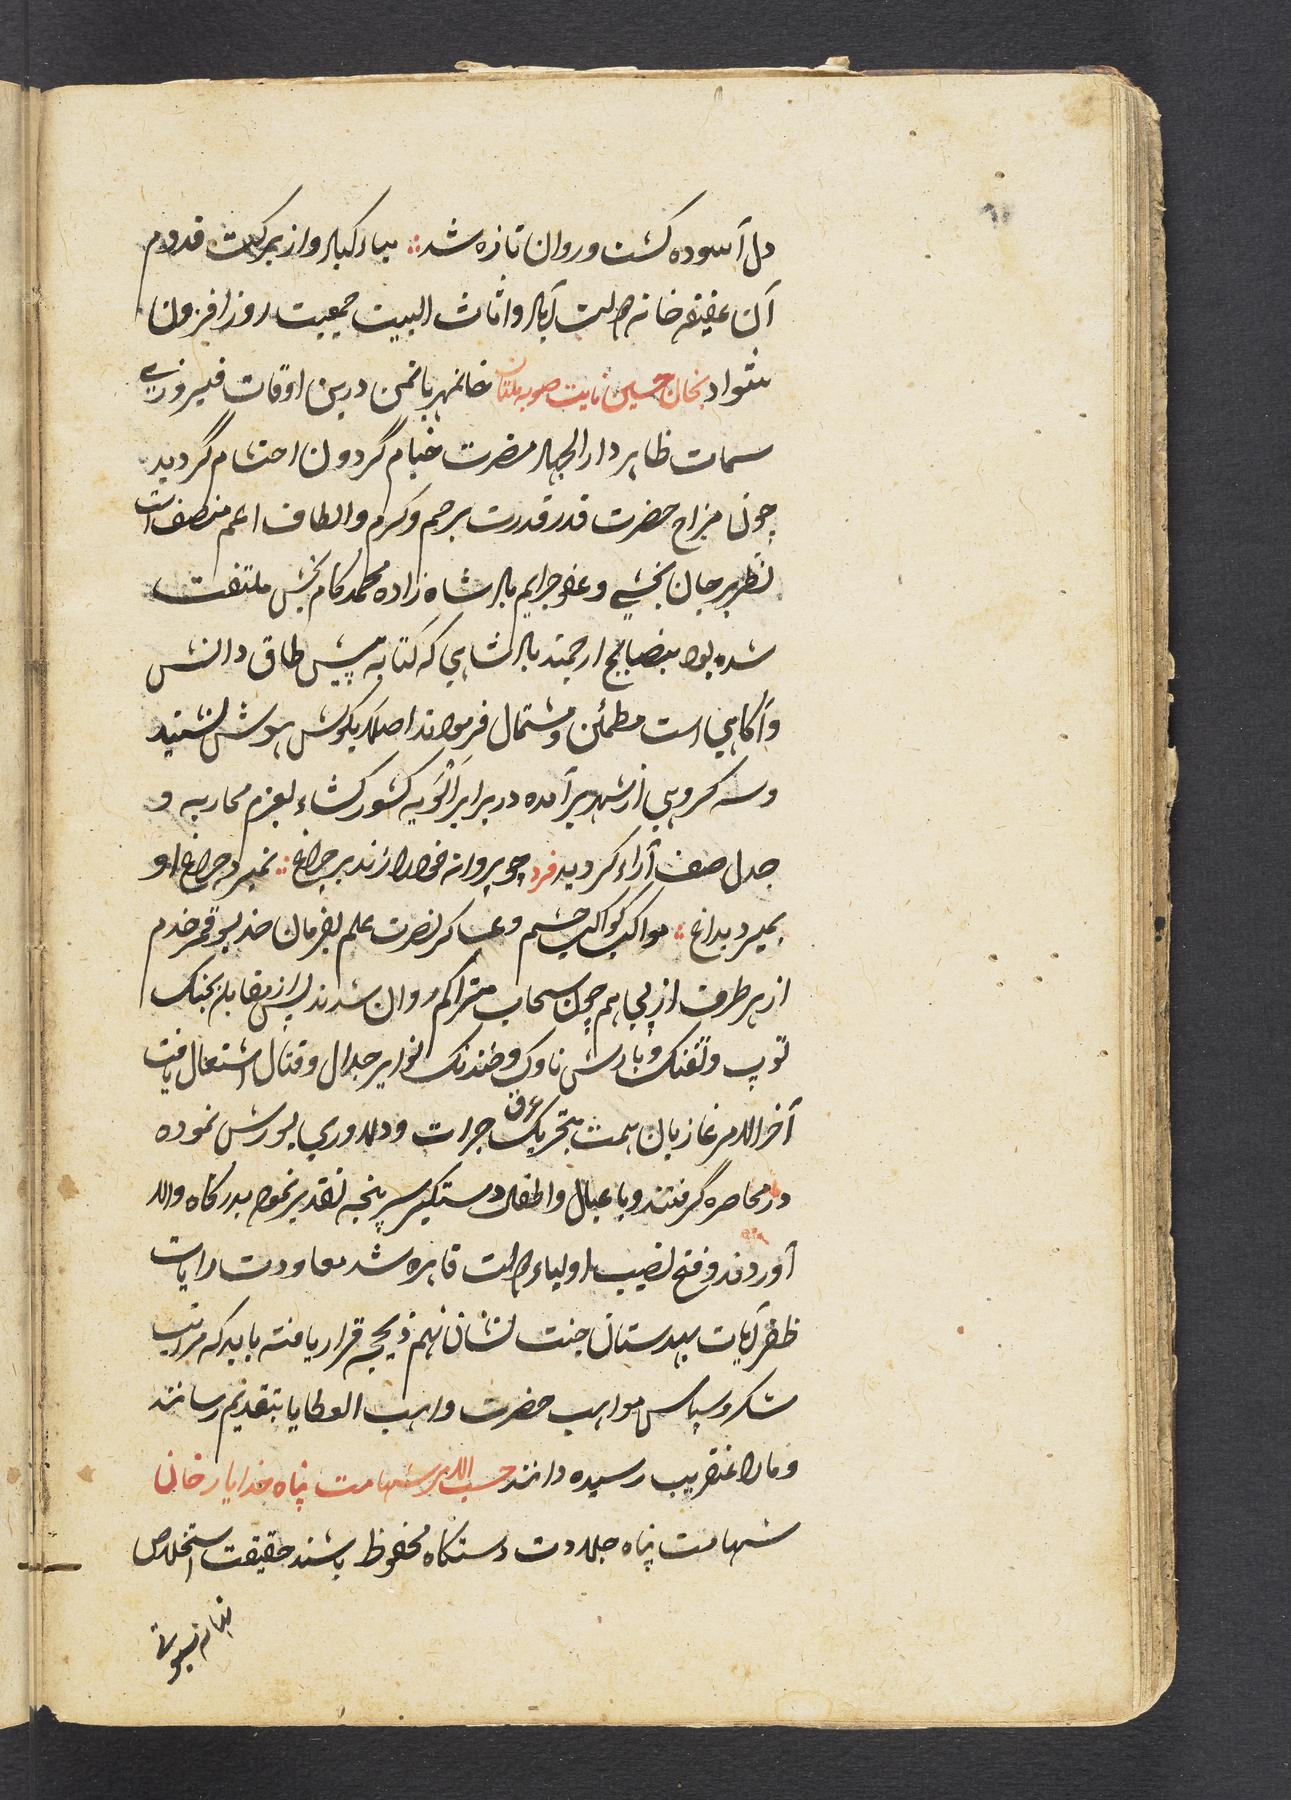 دل آسوده گشت و روان تازه شد ؞ مبارکباد و از برکت قدوم
آن عفیفه خانه دولت آباد و اثاث البیت جمعیت روز افزون
شواد بخان حسین نایت صوبه ملتان خانمهربانمن درین اوقات فیروزی
سمات ظاهر دار الجهاد مضرت خیام گردون احتشام گردید
چون مزاج حضرت قدر قدرت برحم و کرم و الطاف اعم منصف است
نظر بر جان بخشی و عفو جرایم پادشاه زاده محمد کام بخش ملتفت
شده بود بنصایح ارجمند پادشاهی که کتابه پیش طاق دانش
و آگاهی است مطمئن و مشتمال فرمودند اصلا بگوش هوش نشنید
و سه کروهی از شهر برآمده در برابر الویه کشور کشاء بعزم محاربه و
جدل صف آراء گردید فرد چو پروانه خود را زند بر چراغ ؞ نمیرد چراغ او
بمیرد بداغ ؞ مواکب کواکب حشم و عساکر نصرت علم بفرمان خدیو قمر خدم
از هر طرف از پی هم چون سحاب متراکم روان شدند پس از مقابله بجنگ
توپ و تفنگ و بارش ناوک و خدنگ نوایر جدال و قتال اشتعال یافت
آخر الامر غازیان همت بتحریک عرق جرات و دلاوری یورش نموده
در محاصره گرفتند و با عیال و اطفال دستگیر سرپنجه تقدیر نموده بدرگاه والا
آوردند و فتح نصیب اولیاء دولت قاهره شد معاودت رایات
ظفر آیات بهندستان جنت نشان نهم ذیحجه قرار یافته باید که مراتب
شکر و سپاس مواهب حضرت واهب العطایا بتقدیم رسانند
و ما را عنقریب رسیده دانند حسب الامر شهامت پناه خدایار خان
شهامت پناه جلادت دستگاه محفوظ باشند حقیقت استخلاص